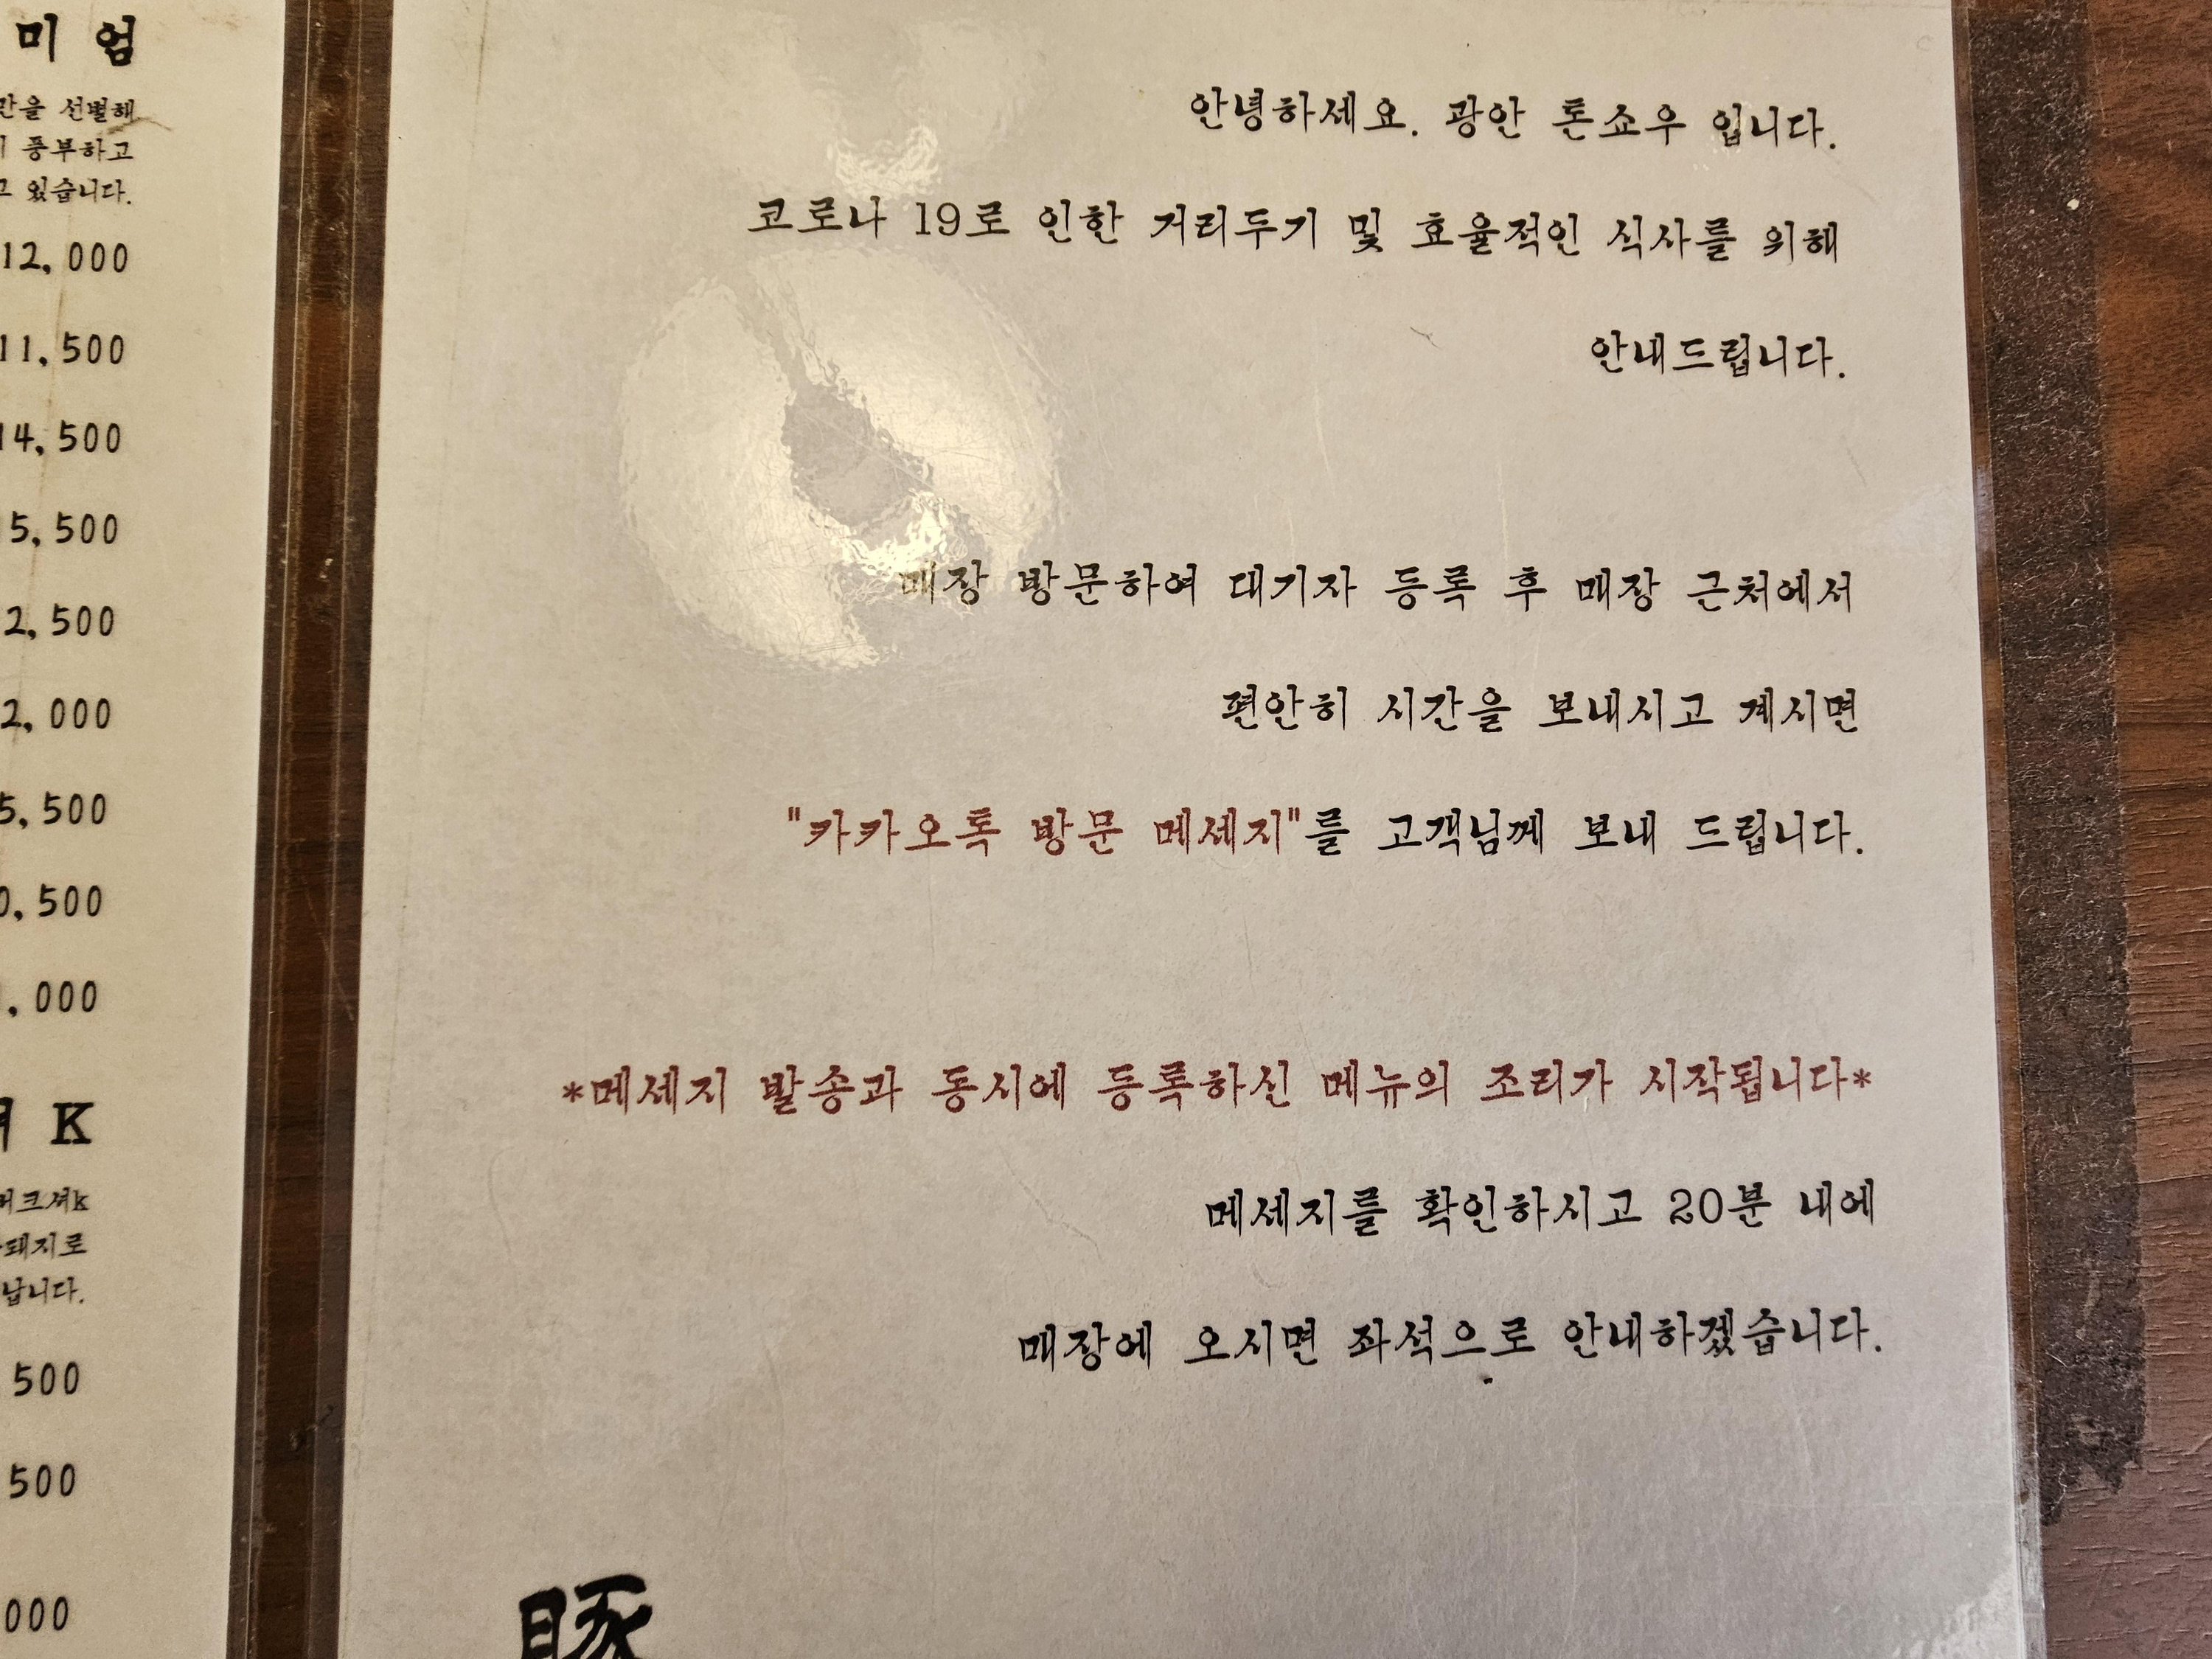 미 엄
만을 선별해
풍부하고
고 있습니다.
12,000
11,500
14,500
5,500
2,500
2,000
5,500
0,500
,000
K
버크셔k
돼지로
납니다.
500
500
000
안녕하세요. 광안 톤쇼우 입니다.
코로나 19로 인한 거리두기 및 효율적인 식사를 위해
안내드립니다.
매장 방문하여 대기자 등록 후 매장 근처에서
편안히 시간을 보내시고 계시면
"카카오톡 방문 메세지"를 고객님께 보내 드립니다.
*메세지 발송과 동시에 등록하신 메뉴의 조리가 시작됩니다*
메세지를 확인하시고 20분 내에
매장에 오시면 좌석으로 안내하겠습니다.
豚